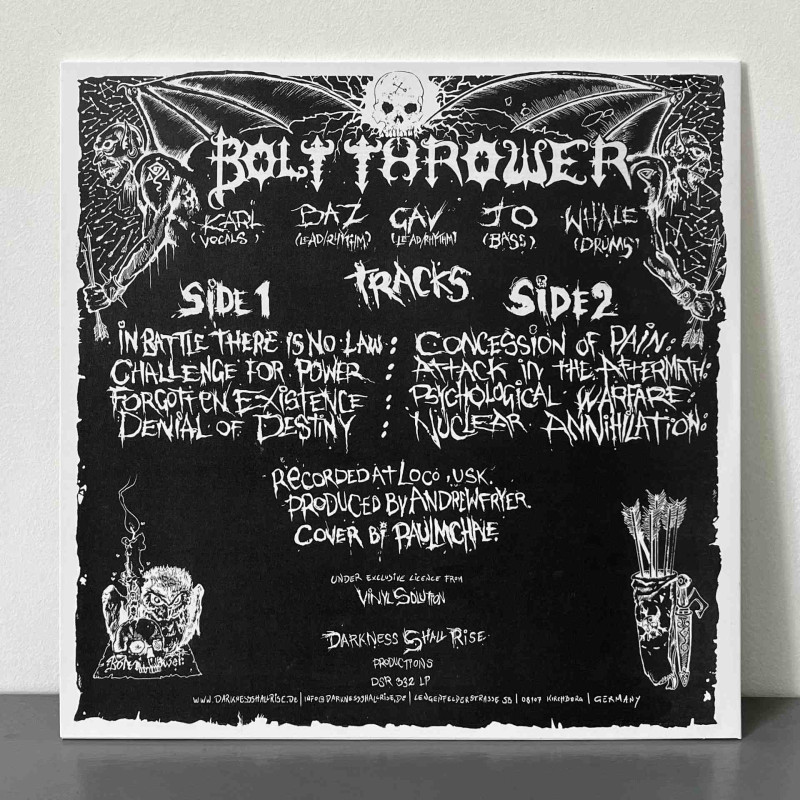 BOLT THROWER
KARL BAZ GAV JO WHALE
(VOCALS) (LEAD/RHYTHM) (LEAD/RHYTHM) (BASS) (DRUMS)
TRACKS
SIDE 1 SIDE 2
IN BATTLE THERE IS NO LAW : CONCESSION OF PAIN:
CHALLENGE FOR POWER : ATTACK IN THE AFTERMATH:
FORGOTTEN EXISTENCE : PSYCHOLOGICAL WARFARE:
DENIAL OF DESTINY : NUCLEAR ANNIHILATION:
RECORDED AT LOCO, USK.
PRODUCED BY ANDREW FRYER.
COVER BY PAUL MCHALE.
UNDER EXCLUSIVE LICENCE FROM
VINYL SOLUTION
DARKNESS SHALL RISE
PRODUCTIONS
DSR 332 LP
WWW.DARKNESSSHALLRISE.DE | INFO@DARKNESSSHALLRISE.DE | LENGENFELDERSTRASSE 5B | 08107 KIRCHBERG | GERMANY